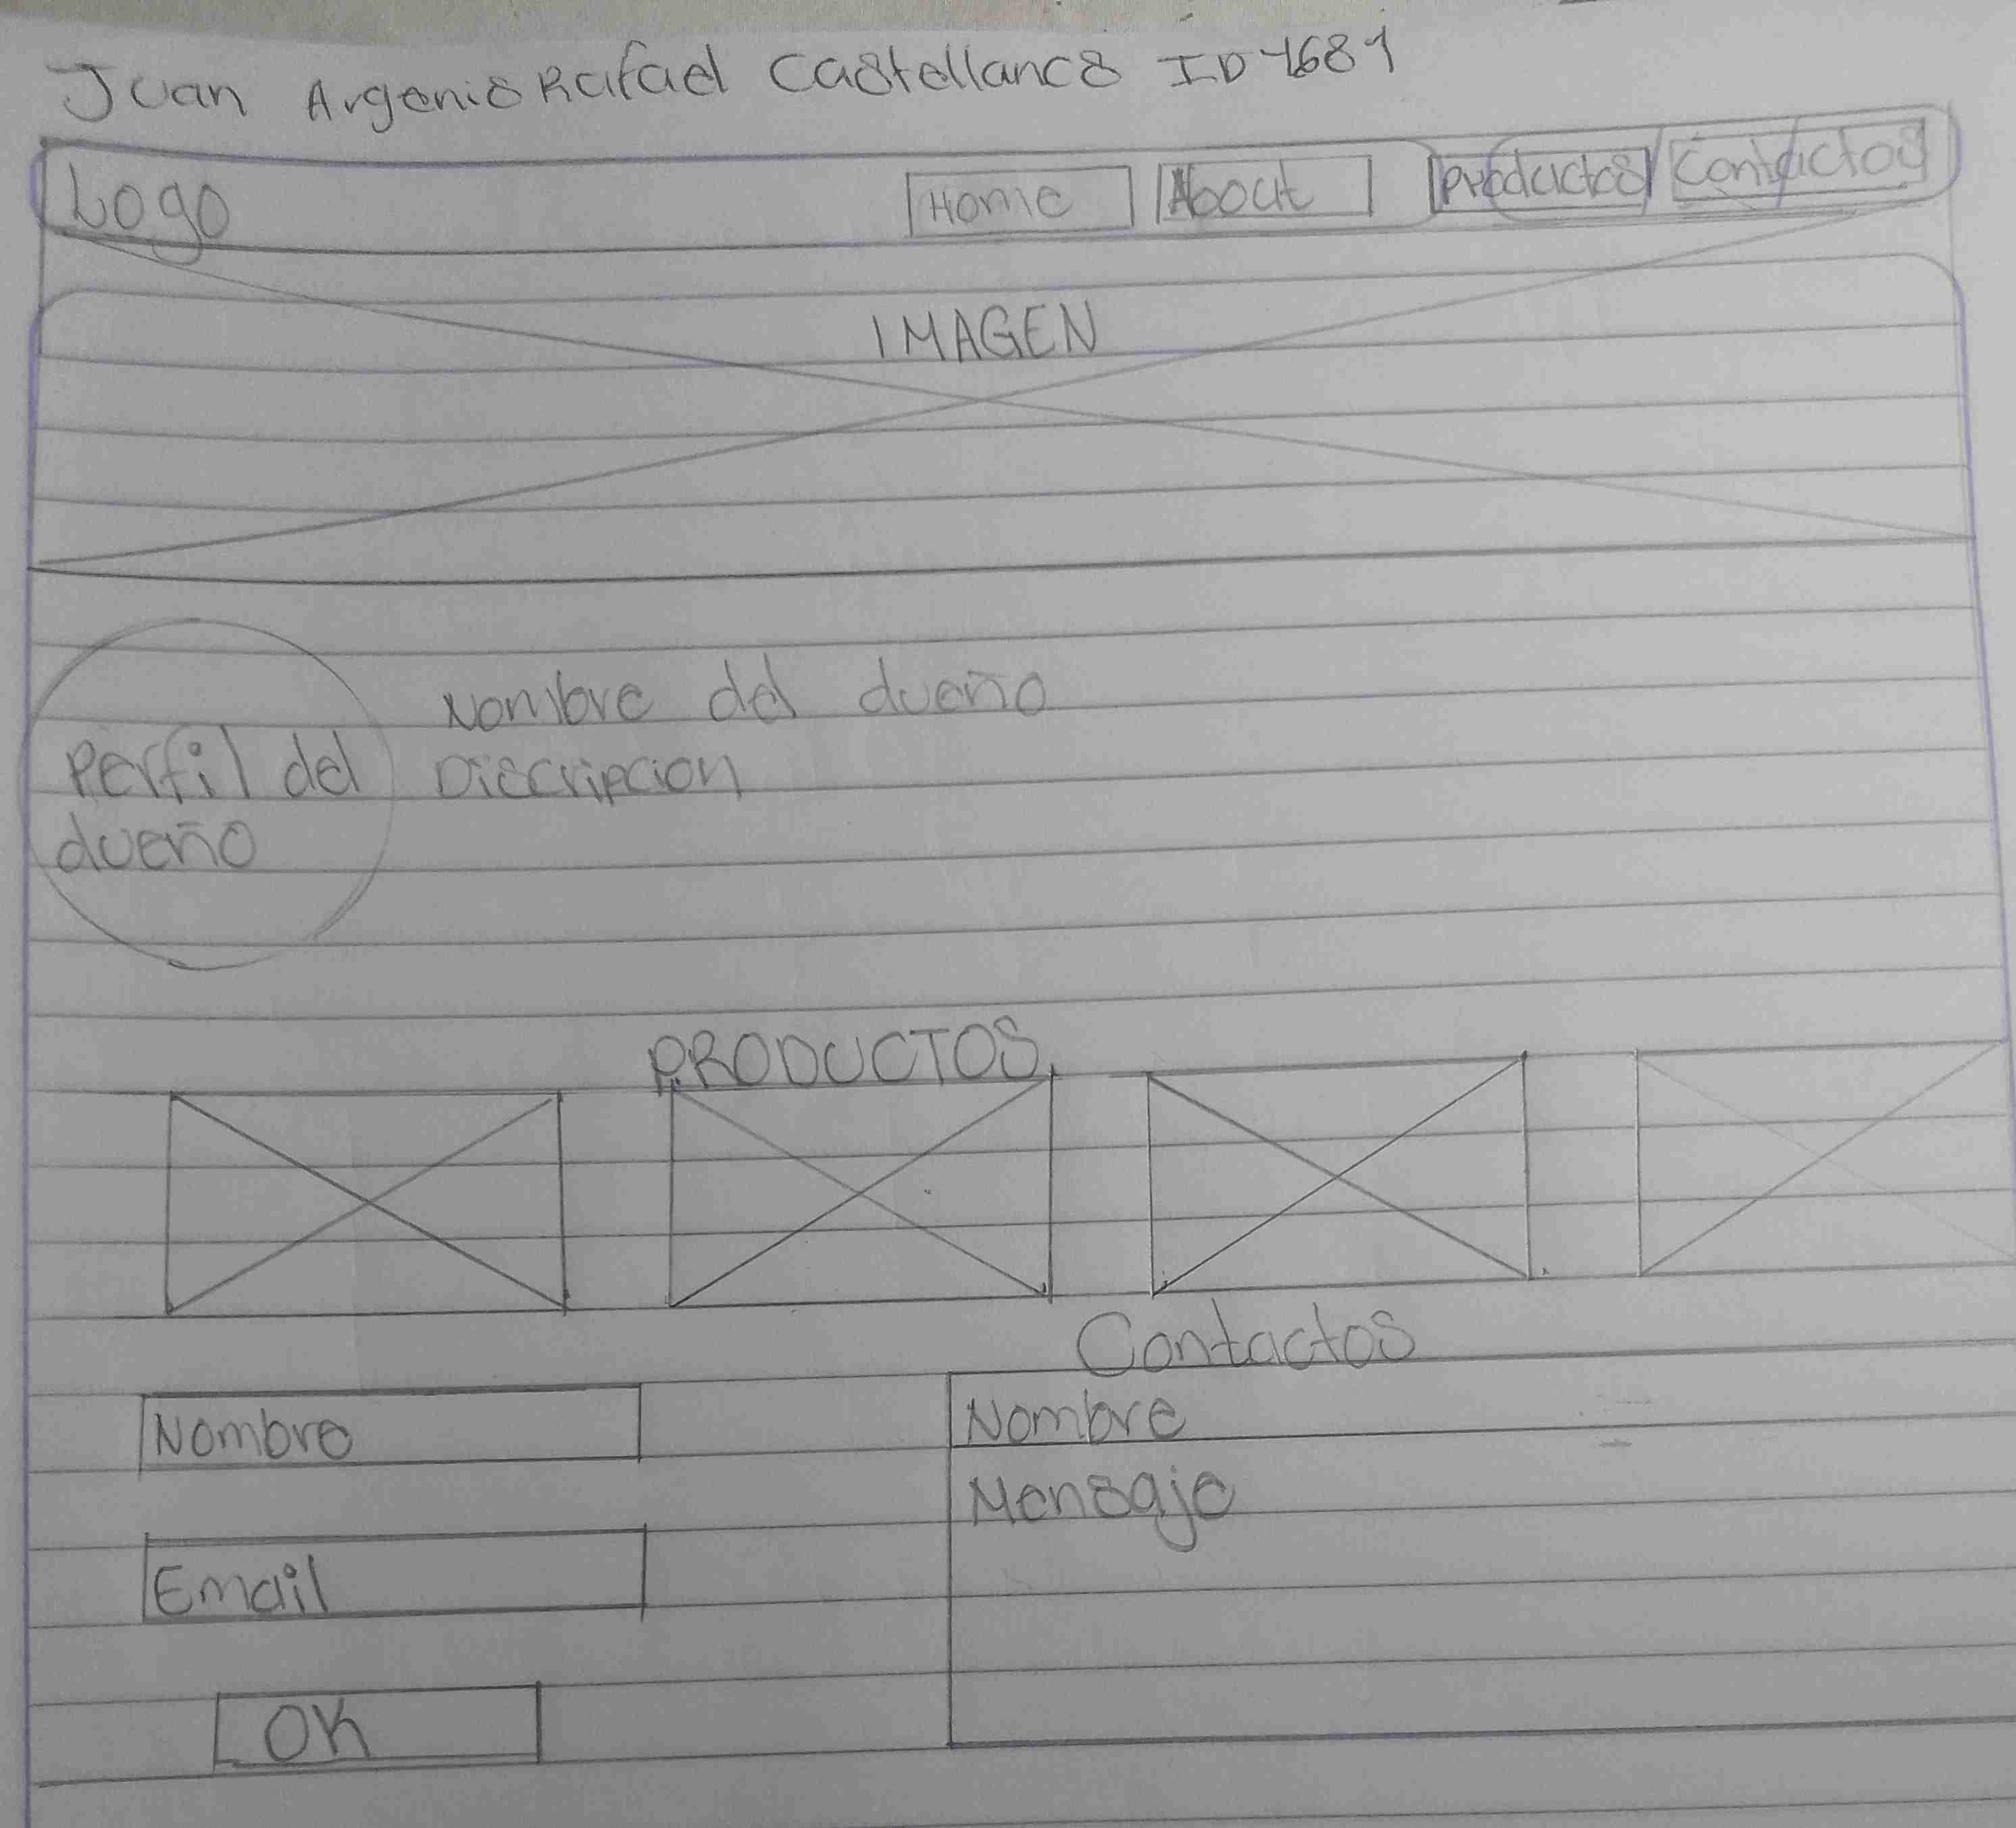 Juan Argenis Rafael Castellanos ID-1681
Logo Home About Productos Contactos
IMAGEN
Nombre del dueño
Perfil del
dueño
Discripcion
PRODUCTOS
Contactos
Nombre
Email
OK
Nombre
Mensaje